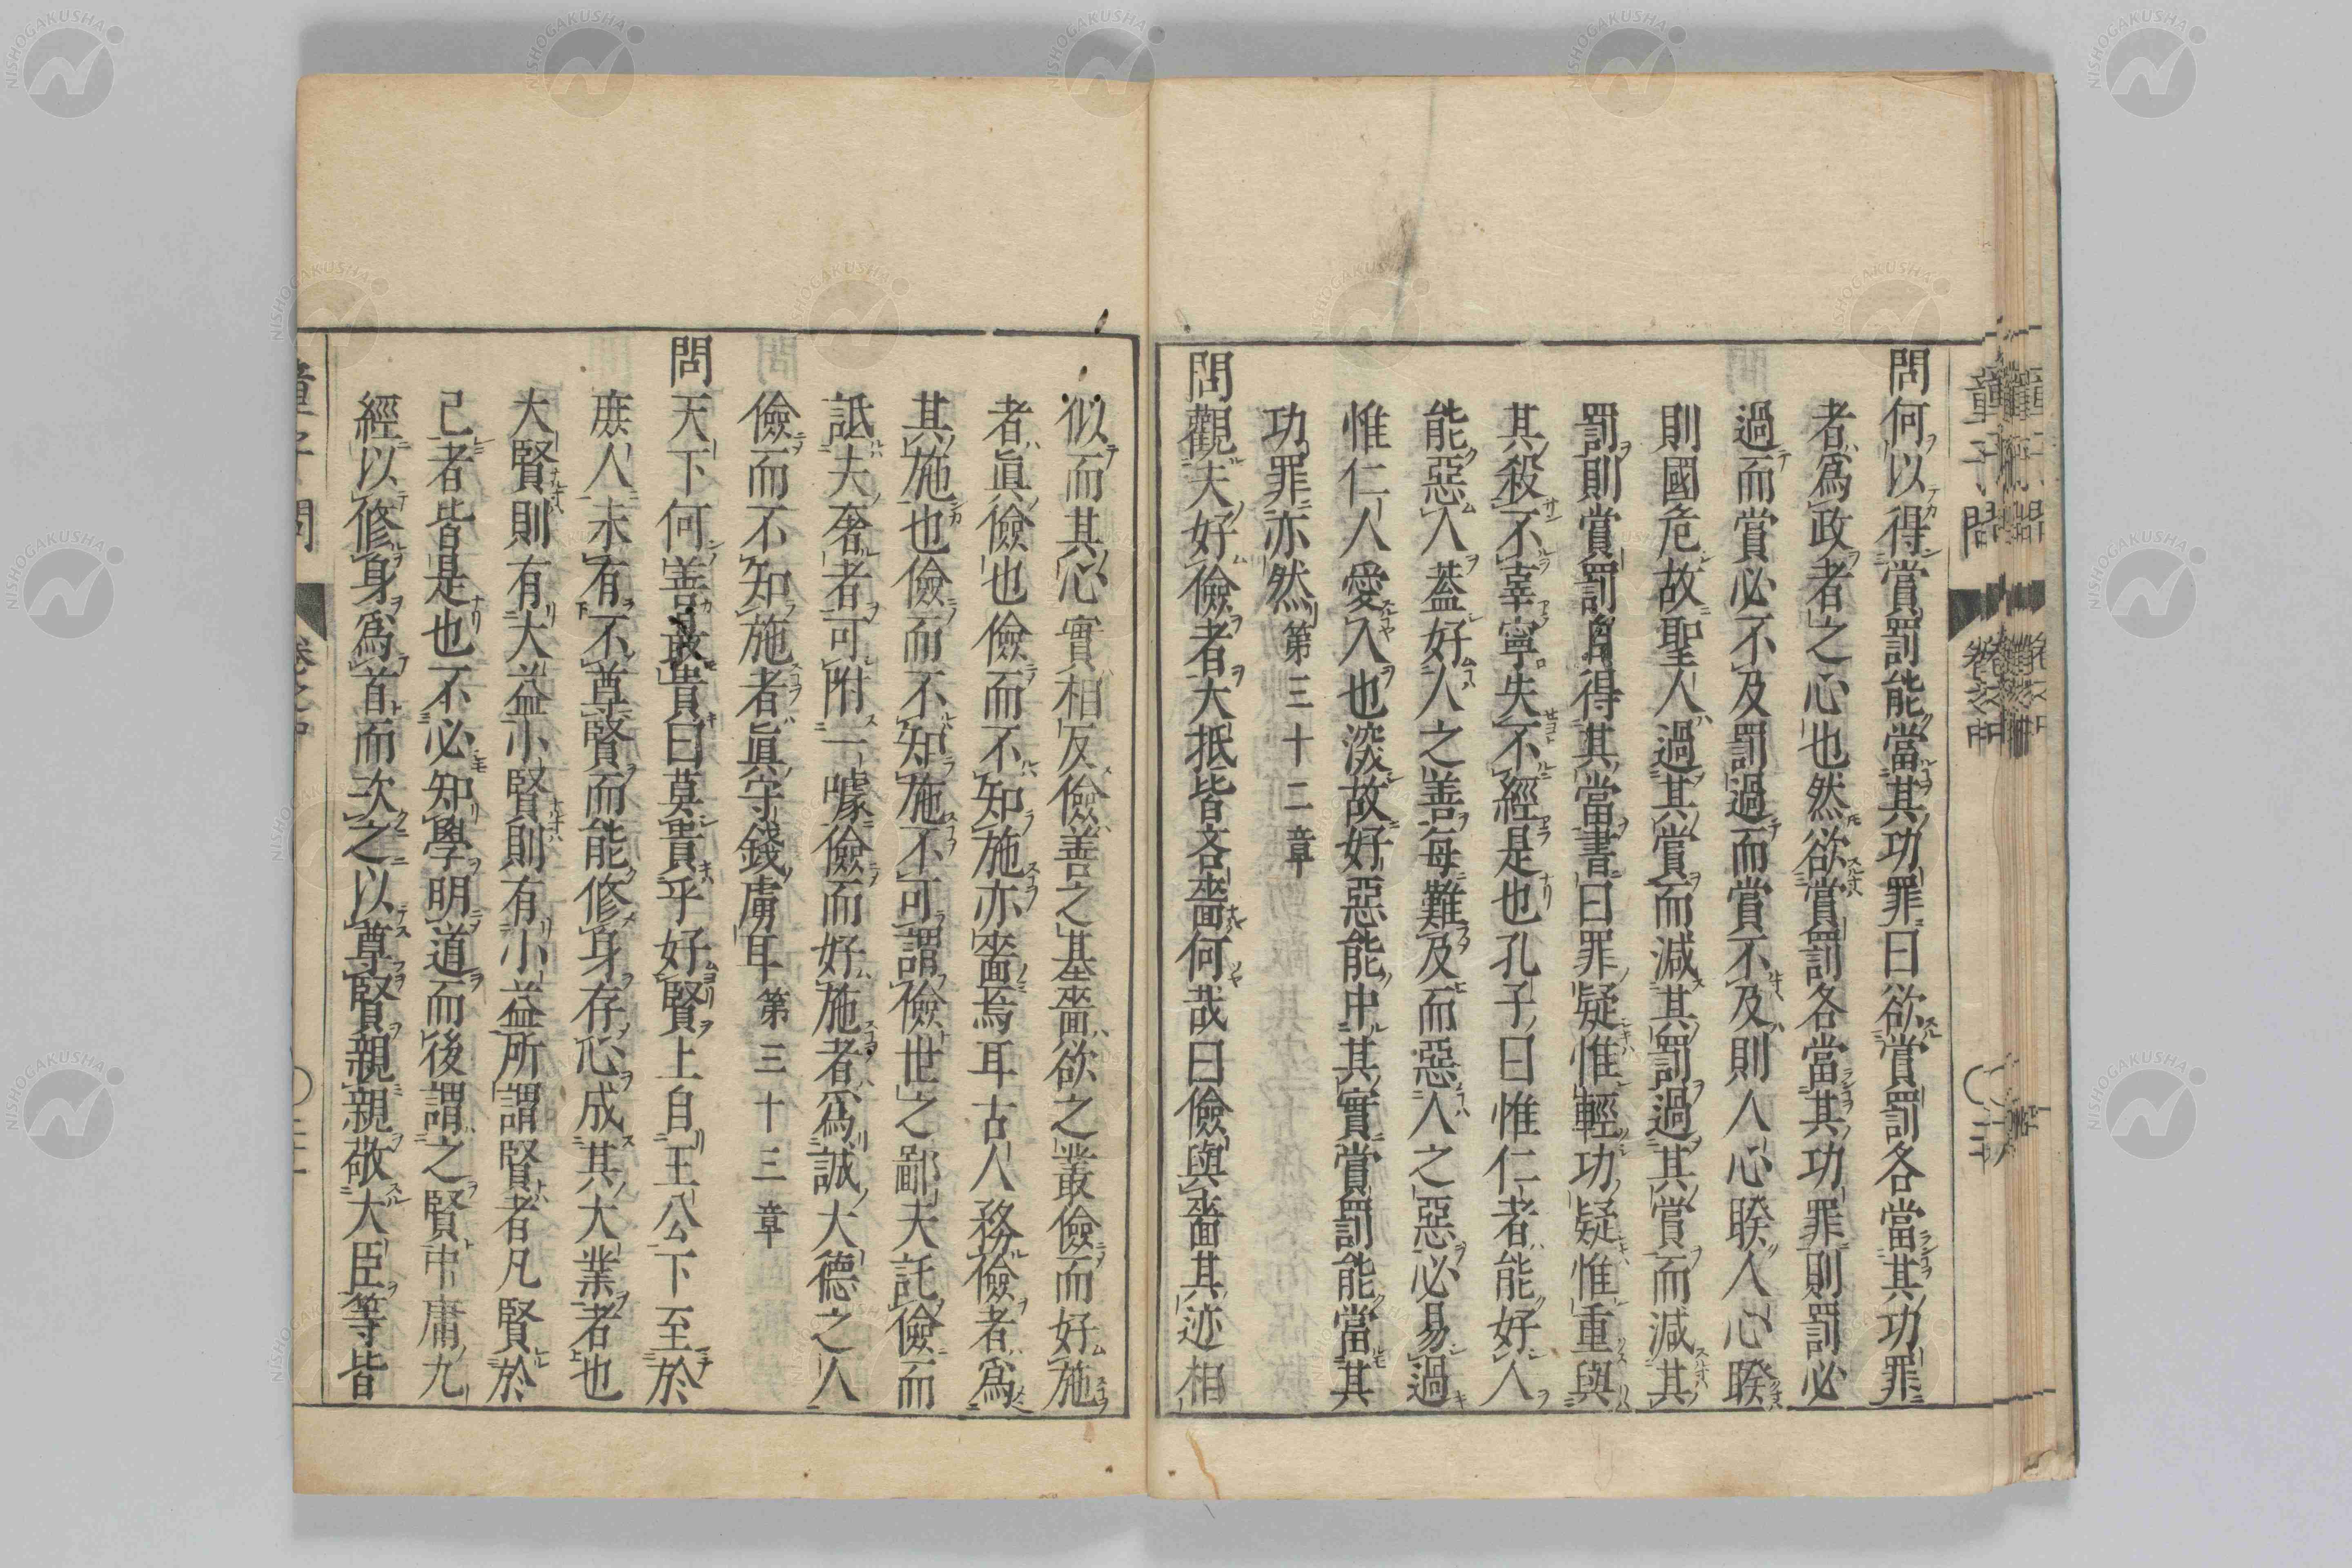 問何以得賞罰能當其功罪曰欲賞罰各當其功罪
者爲政者之心也然欲賞罰各當其功罪則罰必
過而賞必不及罰過而賞不及則人心睽人心睽
則國危故聖人過其賞而減其罰過其賞而減其
罰則賞罰自得其當書曰罪疑惟輕功疑惟重與
其殺不辜寧失不經是也孔子曰惟仁者能好人
能惡人蓋好人之善每難及而惡人之惡必易過
惟仁人愛人也深故好惡能中其實賞罰能當其
功罪亦然第三十二章
問觀夫好儉者大抵皆吝嗇何哉曰儉與嗇其迹相
似而其心實相反儉善之基嗇欲之叢儉而好施
者眞儉也儉而不知施亦嗇焉耳古人務儉者爲
其施也儉而不知施不可謂儉世之鄙夫託儉而
詆夫奢者可附一噱儉而好施者爲誠大德之人
儉而不知施者眞守錢虜耳第三十三章
問天下何善敢貴曰莫貴乎好賢上自王公下至於
庶人未有不尊賢而能修身存心成其大業者也
大賢則有大益小賢則有小益所謂賢者凡賢於
己者皆是也不必知學明道而後謂之賢中庸九
經以修身爲首而次之以尊賢親親敬大臣等皆
童子問
卷之中
NISHOGAKUSHA